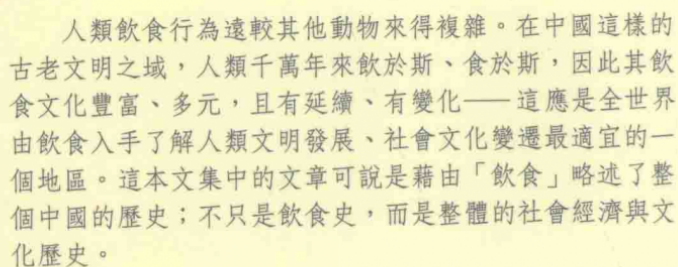 人類飲食行為遠較其他動物來得複雜。在中國這樣的
古老文明之域，人類千萬年來飲於斯、食於斯，因此其飲
食文化豐富、多元，且有延續、有變化——這應是全世界
由飲食入手了解人類文明發展、社會文化變遷最適宜的一
個地區。這本文集中的文章可說是藉由「飲食」略述了整
個中國的歷史；不只是飲食史，而是整體的社會經濟與文
化歷史。